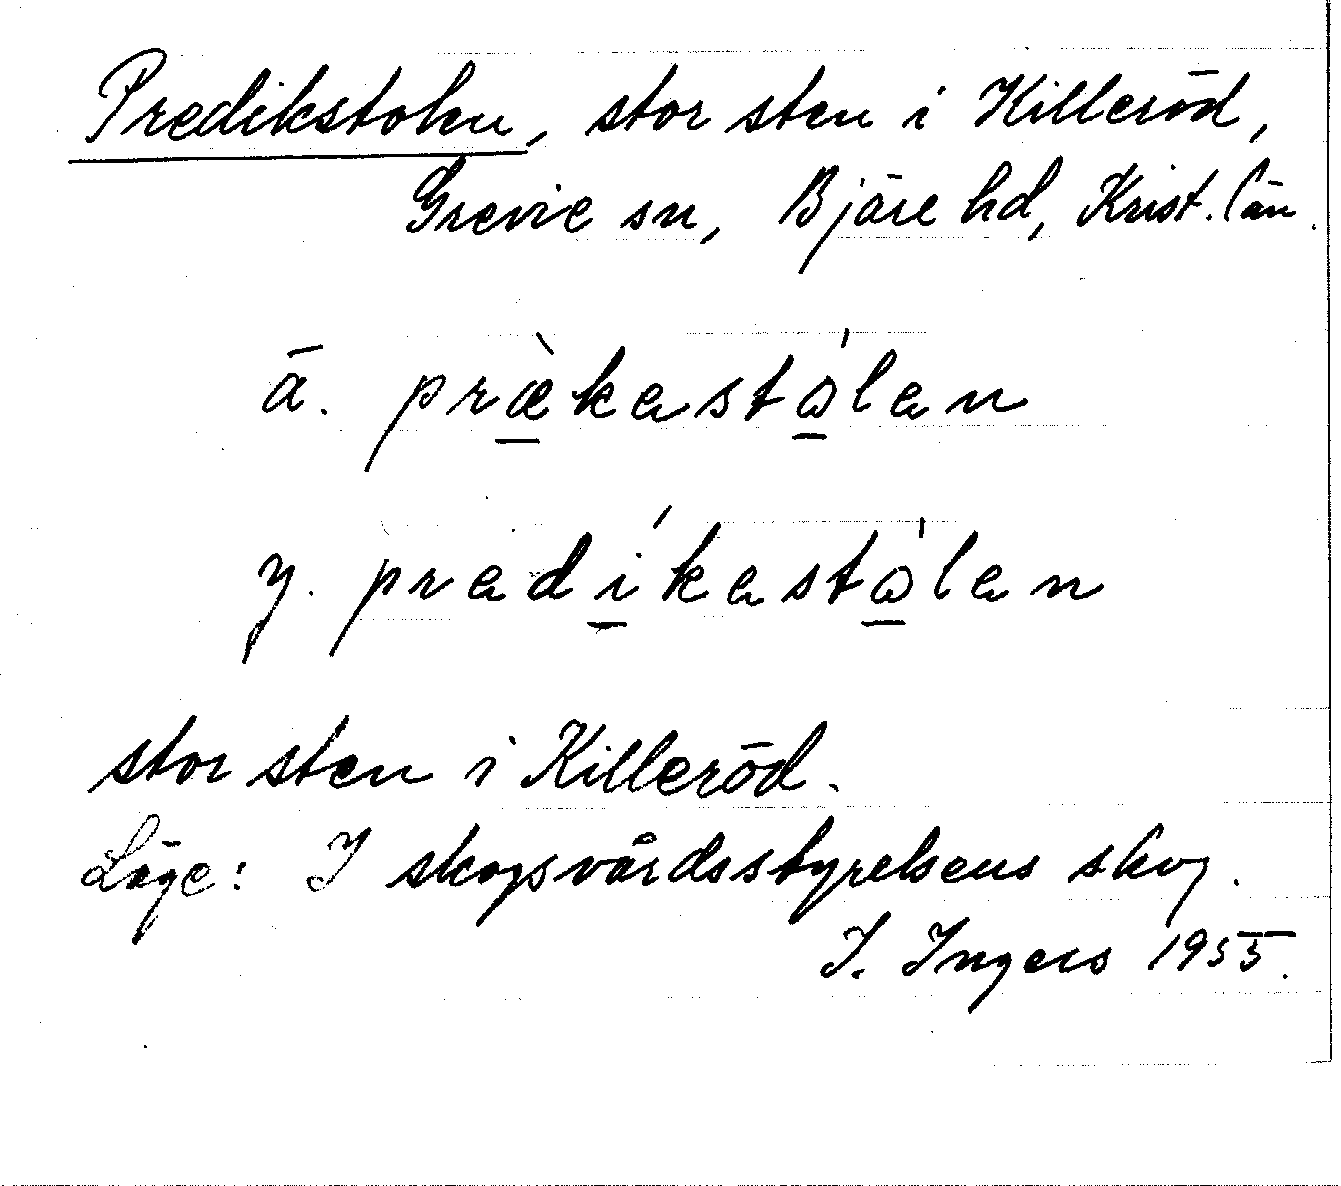 Predikstolen, stor sten i Killeröd,
Grevie sn, Bjäre hd, Krist. län.
ä. præ̀kastω̍lan
y. pradíkastω̍lan
stor sten i Killeröd.
Läge: I skogsvårdsstyrelsens skog.
I. Ingers 1955.